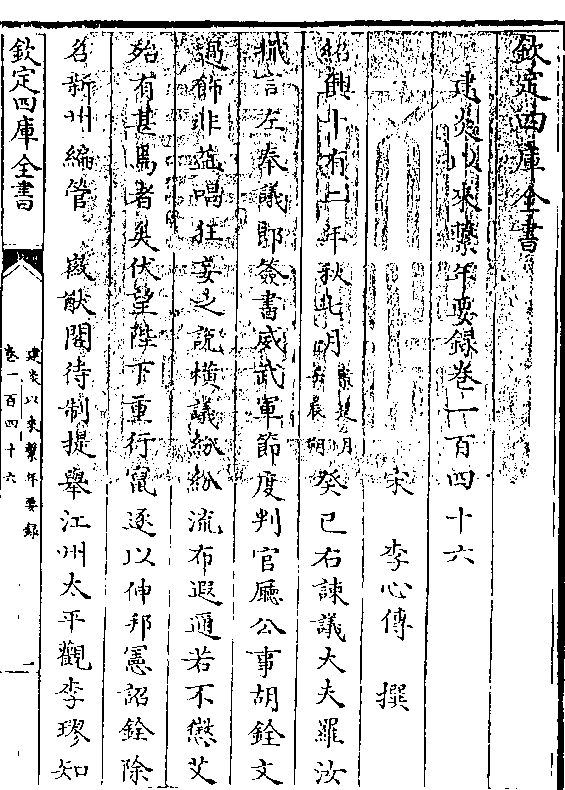 欽定四庫全書
建炎以來繫年要録卷一百四十六
宋 李心傳 撰
紹興十有二年秋七月 癸巳右諫議大夫羅汝
檝言左奉議郎簽書威武軍節度判官廳公事胡銓文
過飾非益唱狂妄之説横議紛紛流布遐邇若不懲艾
殆有甚焉者矣伏望陛下重行竄逐以伸邦憲詔銓除
名新州編管 徽猷閣待制提舉江州太平觀李璆知
欽定四庫全書
建炎以來繫年要録
卷一百四十六
一